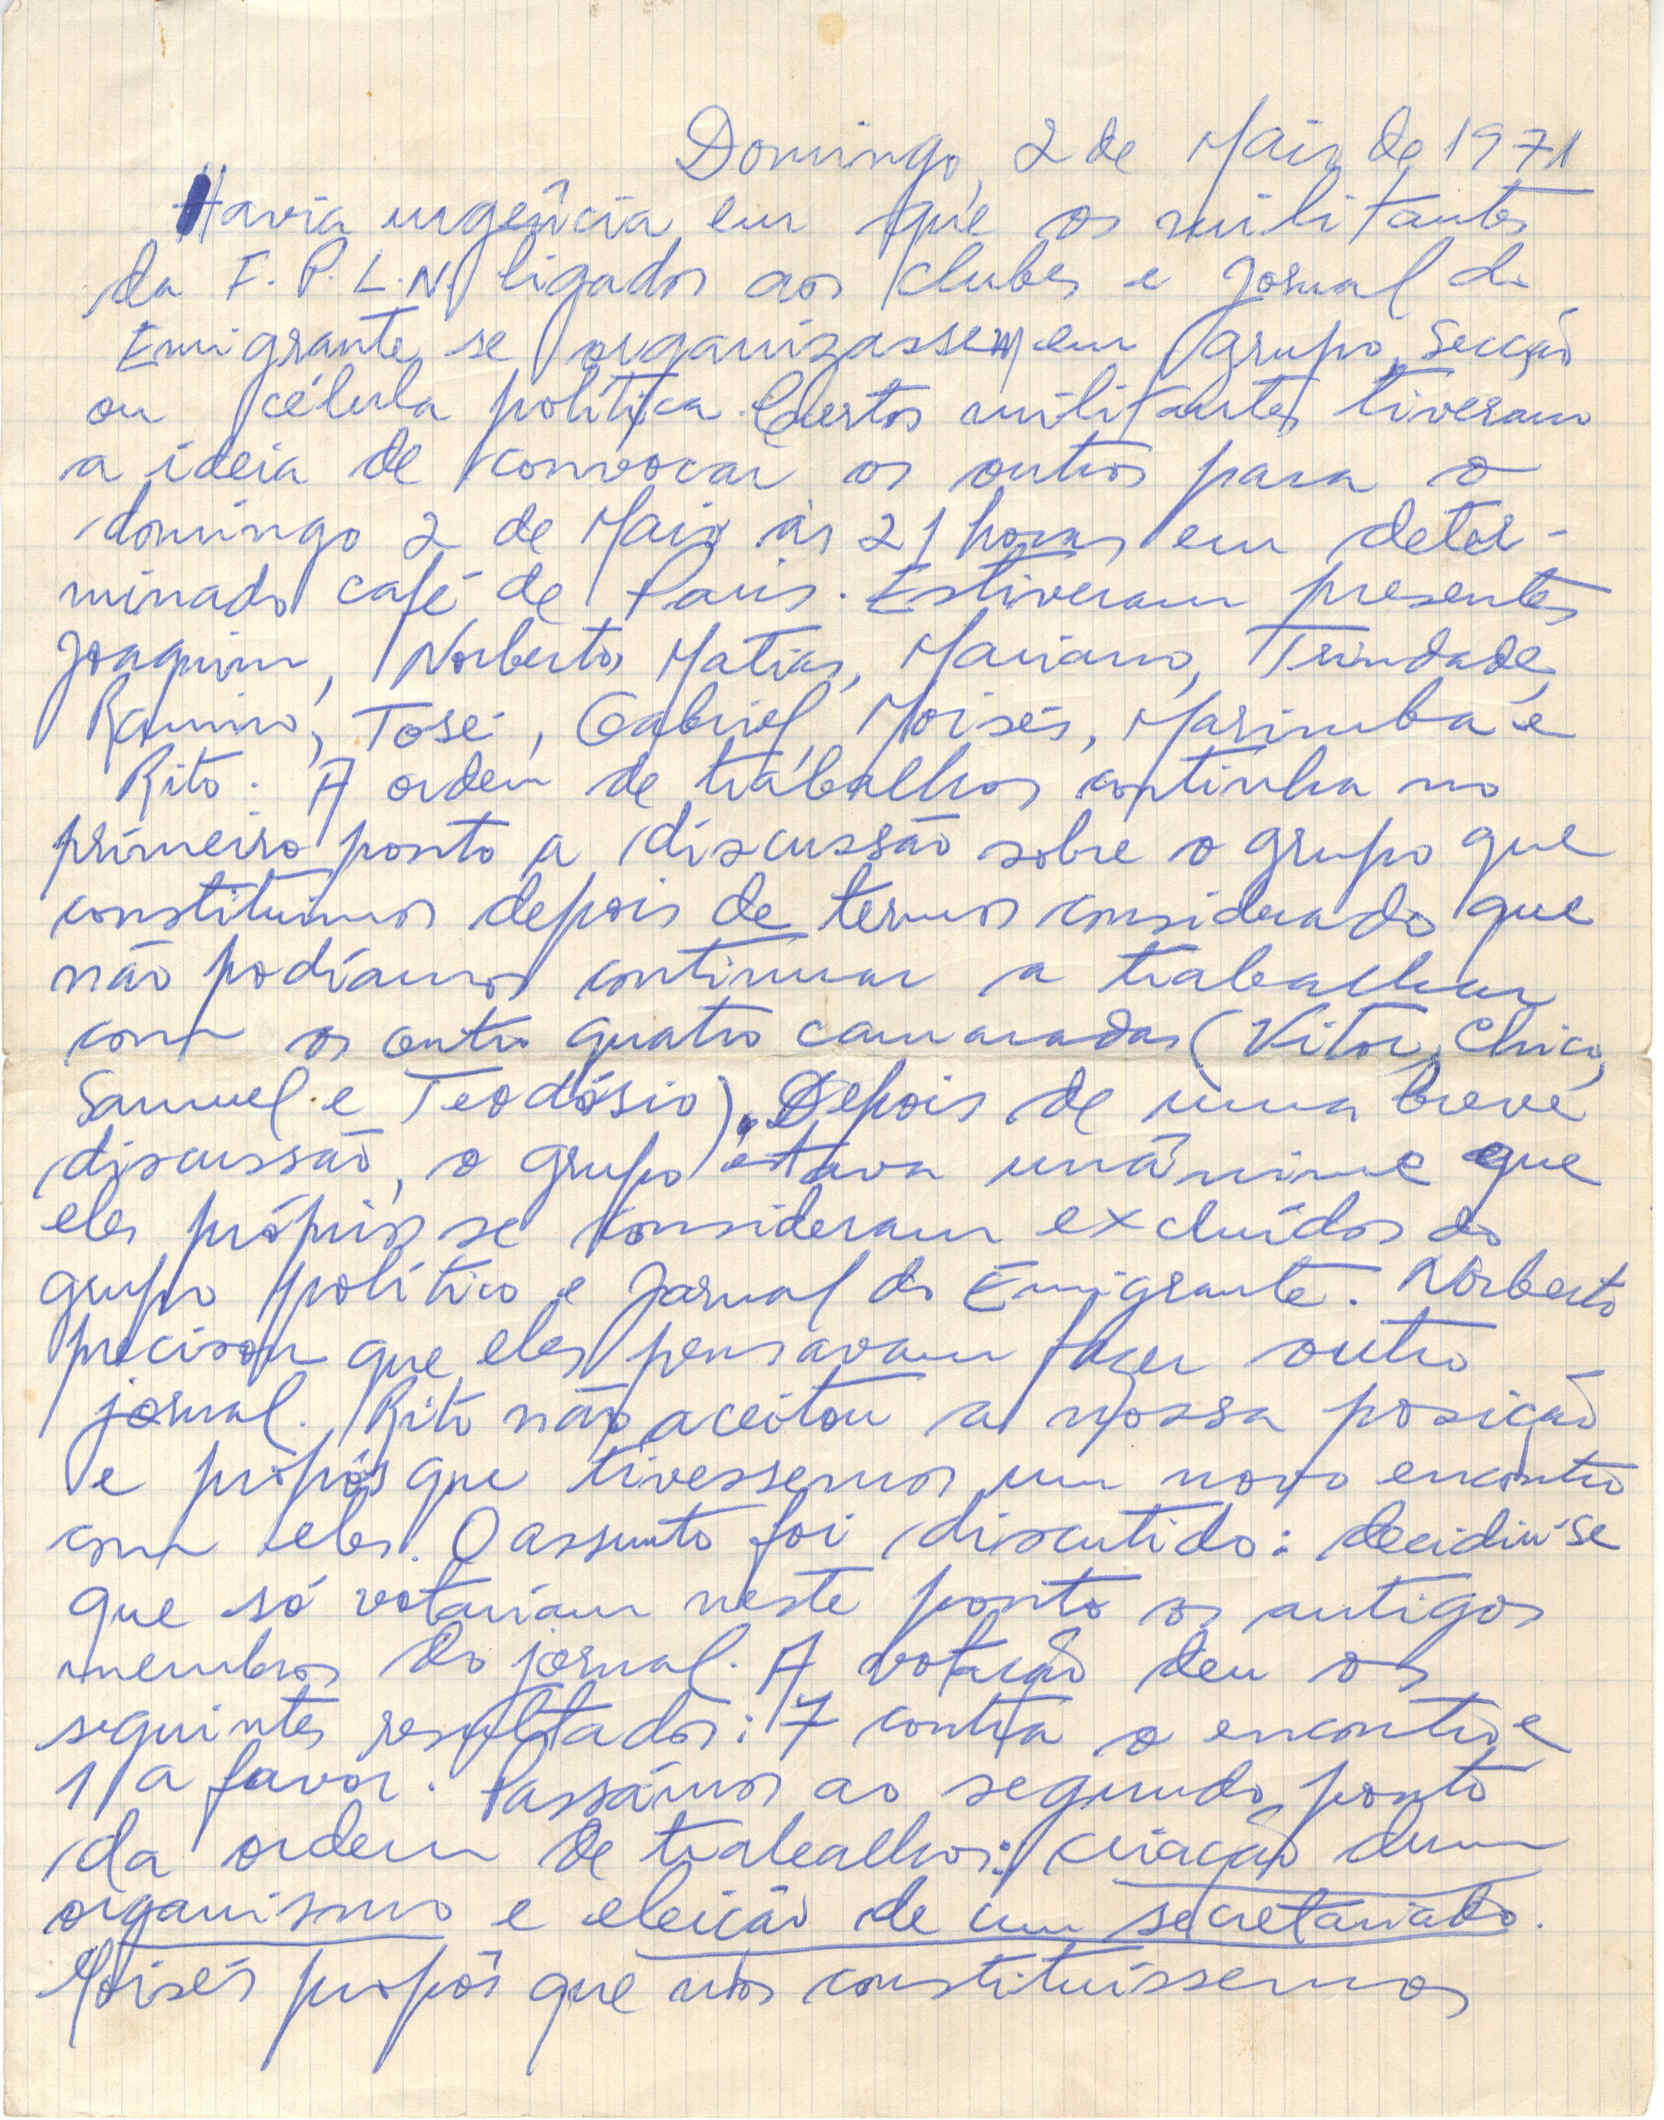 Domingo, 2 de Maio de 1971
Havia urgência em que os militantes
da F.P.L.N. ligados aos clubes e Jornal do
Emigrante se organizassem em grupo, secção
ou célula política. Certos militantes tiveram
a ideia de convocar os outros para o
domingo 2 de Maio às 21 horas em deter-
minado café de Paris. Estiveram presentes
Joaquim, Norberto, Matias, Mariano, Trindade,
Ramiro, José, Gabriel, Moisés, Marimba e
Rito. A ordem de trabalhos continha no
primeiro ponto a discussão sobre o grupo que
constituimos depois de termos considerado que
não podíamos continuar a trabalhar
com os outros quatro camaradas (Vitor, Chico,
Samuel e Teodósio). Depois de uma breve
discussão, o grupo estava unânime que
eles próprios se consideram excluídos do
grupo político e Jornal do Emigrante. Norberto
precisou que eles pensavam fazer outro
jornal. Rito não aceitou a nossa posição
e propôs que tivessemos um novo encontro
com eles. O assunto foi discutido: decidiu-se
que só votariam neste ponto os antigos
membros do jornal. A votação deu os
seguintes resultados: 7 contra o encontro e
1 a favor. Passámos ao segundo ponto
da ordem de trabalhos: criação dum
organismo e eleição de um secretariado.
Moisés propôs que nós constituíssemos